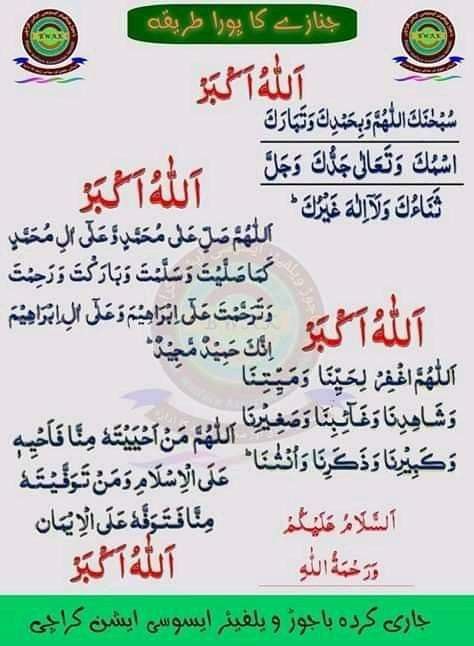 جنازے کا پورا طریقہ
BWAK
BWAK
اَللّٰهُ اَكْبَرْ
سُبْحٰنَكَ اللّٰهُمَّ وَبِحَمْدِكَ وَتَبَارَكَ
اسْمُكَ وَتَعَالٰى جَدُّكَ وَجَلَّ
ثَنَاءُكَ وَلَآ اِلٰهَ غَيْرُكَ ط
اَللّٰهُ اَكْبَرْ
اَللّٰهُمَّ صَلِّ عَلٰى مُحَمَّدٍ وَّعَلٰٓى اٰلِ مُحَمَّدٍ
كَمَا صَلَّيْتَ وَسَلَّمْتَ وَبَارَكْتَ وَرَحِمْتَ
وَتَرَحَّمْتَ عَلٰٓى اِبْرَاهِيْمَ وَعَلٰٓى اٰلِ اِبْرَاهِيْمَ
اِنَّكَ حَمِيْدٌ مَّجِيْدٌ ط
اَللّٰهُ اَكْبَرْ
اَللّٰهُمَّ اغْفِرْ لِحَيِّنَا وَمَيِّتِنَا
وَشَاهِدِنَا وَغَآئِبِنَا وَصَغِيْرِنَا
وَكَبِيْرِنَا وَذَكَرِنَا وَاُنْثٰنَا ط
اَللّٰهُمَّ مَنْ اَحْيَيْتَهٗ مِنَّا فَاَحْيِهٖ
عَلَى الْاِسْلَامِ وَمَنْ تَوَفَّيْتَهٗ
مِنَّا فَتَوَفَّهٗ عَلَى الْاِيْمَان
اَللّٰهُ اَكْبَرْ
اَلسَّلَامُ عَلَيْكُمْ
وَرَحْمَةُ اللّٰهِ
جاری کردہ باجوڑ ویلفیئر ایسوسی ایشن کراچی